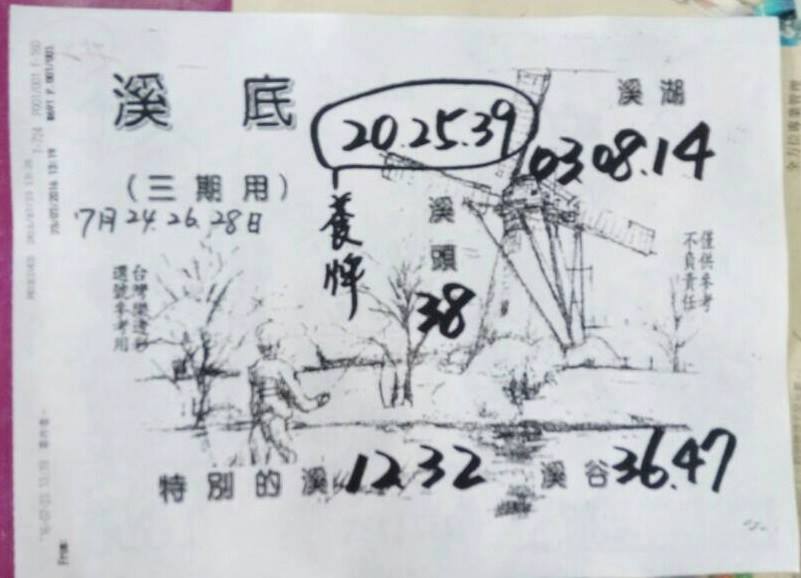 溪底
20.25.39
溪湖
03.08.14
(三期用)
7月24.26.28日
養牌
溪頭
38
僅供參考
不負責任
台灣樂透彩
選號參考用
特別的溪 12.32
溪谷 36.47
From: